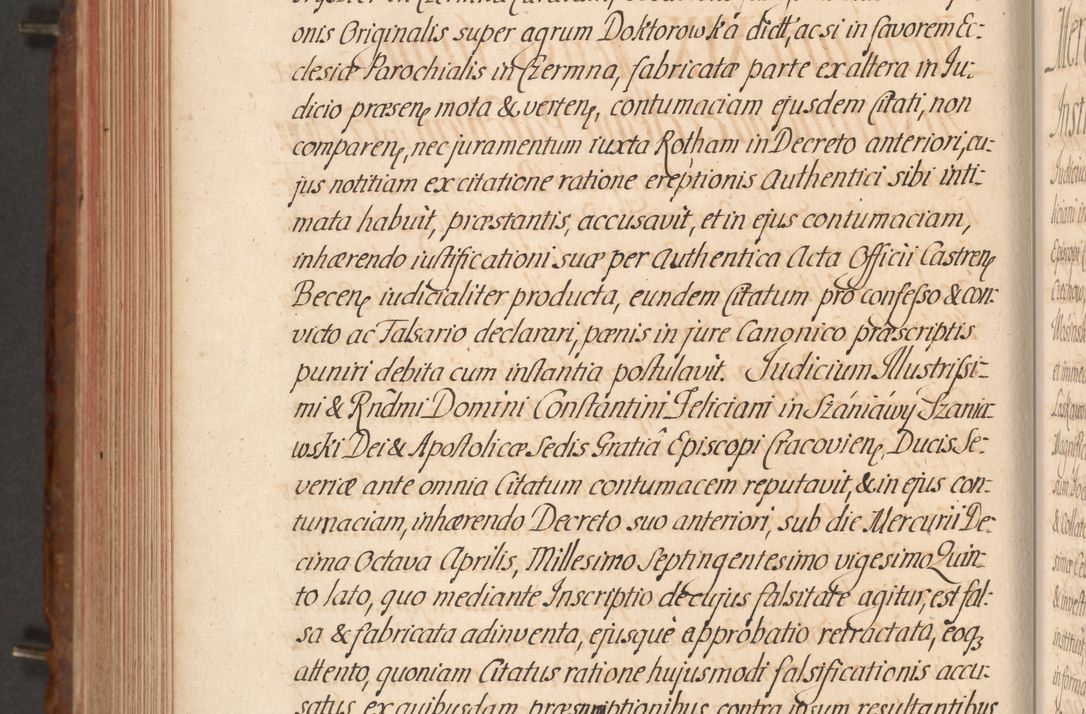 onis Originalis super agrum Doktorowká dict, ac si in favorem Ec:
clesiæ Parochialis in Czermna, fabricatæ parte ex altera in Ju:
dicio præsenę mota & vertenę, contumaciam ejusdem Citati, non
comparenę, nec juramentum iuxta Rotham in Decreto anteriori, cu:
jus notitiam ex citatione ratione ereptionis Authentici sibi inti:
mata habuit, præstantis, accusavit, et in ejus contumaciam,
inhærendo iustificationi suæ per Authentica Acta Officii Castrenę
Becenę iudicialiter producta, eundem Citatum pro confesso & con:
victo ac Falsario declarari, pœnis in jure Canonico præscriptis
puniri debita cum instantia postulavit. Judicium Illustrissi:
mi & Rndmi Domini Constantini Feliciani in Szániáwy Szania:
wski Dei & Apostolicæ Sedis Gratiâ Episcopi Cracovienę, Ducis Se:
veriæ ante omnia Citatum contumacem reputavit, & in ejus con:
tumaciam, inhærendo Decreto suo anteriori, sub die Mercurii De:
cima Octava Aprilis, Millesimo Septingentesimo vigesimo Quin:
to lato, quo mediante Inscriptio de cujus falsitate agitur, est fal:
sa & fabricata adinventa, ejusque approbatio retractata, eoqȝ
attento, quoniam Citatus ratione hujusmodi falsificationis accu:
satus, ex quibusdam præsumptionibus contra ipsum resultantibus